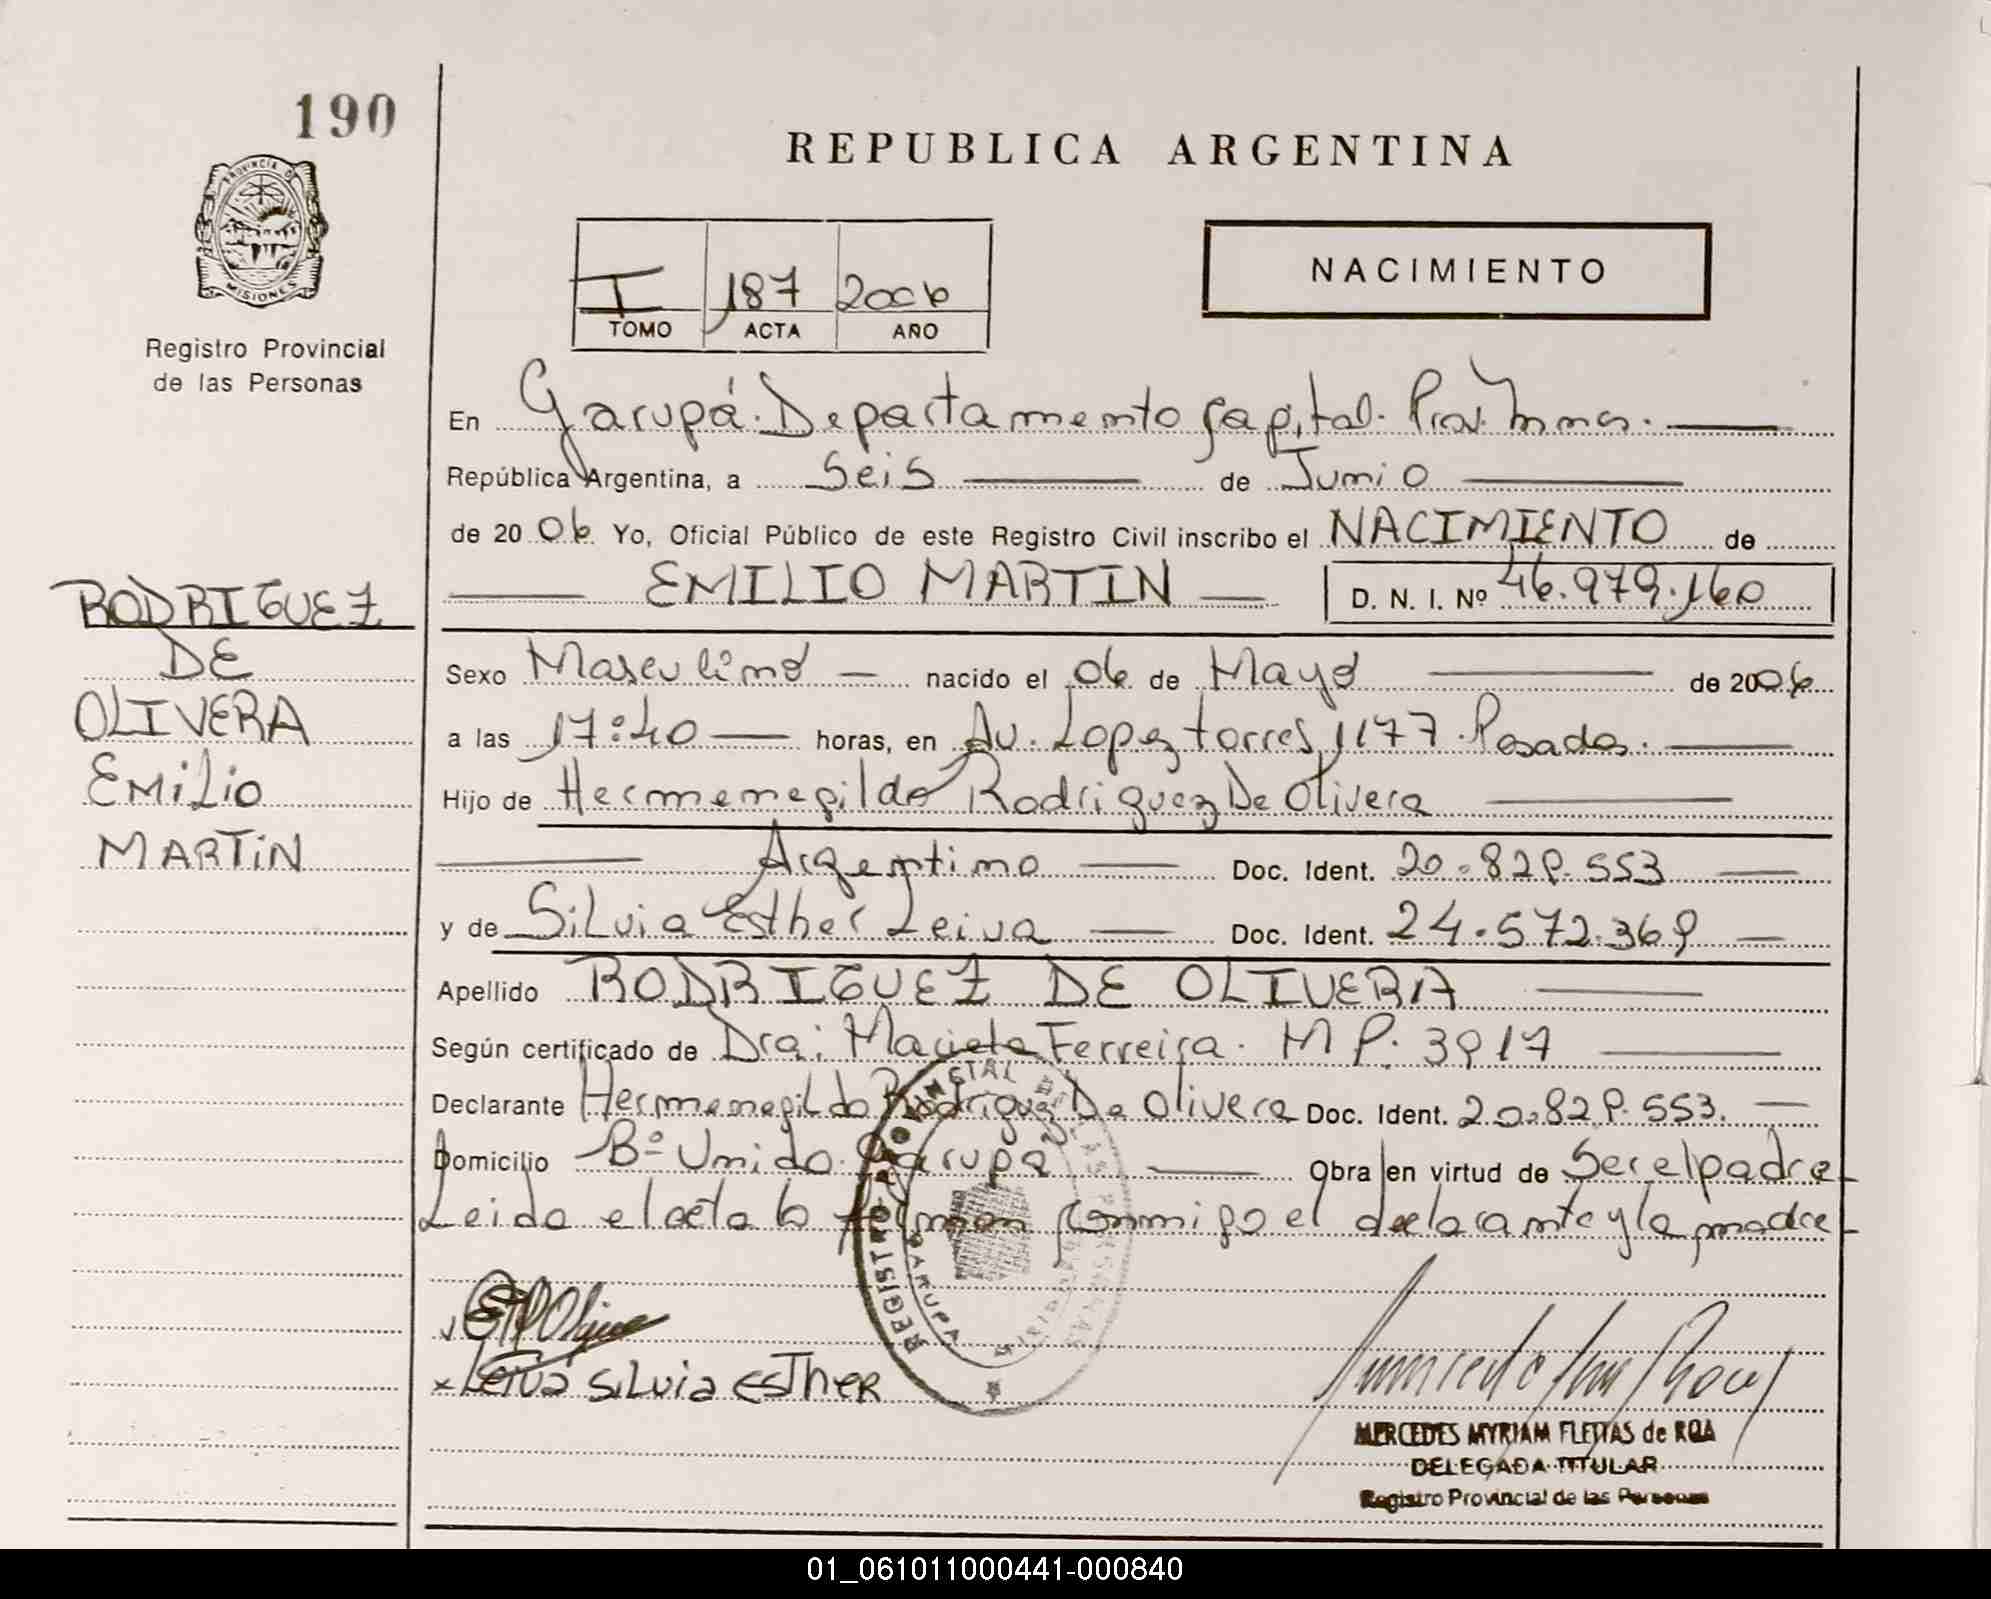 190
REPUBLICA ARGENTINA
PROVINCIA DE
MISIONES
Registro Provincial
de las Personas
I 187 2006
TOMO ACTA AÑO
NACIMIENTO
En Garupá. Departamento Capital. Prov. Mnes.
República Argentina, a Seis de Junio
de 20 06 Yo, Oficial Público de este Registro Civil inscribo el NACIMIENTO de
EMILIO MARTIN D. N. I. Nº 46.979.160
RODRIGUEZ
DE
OLIVERA
EMiLio
MARTiN
Sexo Masculino nacido el 06 de Mayo de 2006
a las 17:40 horas, en Av. Lopez torres 1177. Posadas.
Hijo de Hermenegildo Rodriguez De Olivera
Argentino Doc. Ident. 20.829.553
y de Silvia Esther Leiva Doc. Ident. 24.572.369
Apellido RODRIGUEZ DE OLIVERA
Según certificado de Dra: Ferreira. M P. 3917
Declarante Hermenegildo Rodriguez De Olivera Doc. Ident. 20.829.553.
Domicilio Bº Unido. Garupá Obra en virtud de Ser el padre
Leida el acta la firman conmigo el declarante y la madre
REGISTRO PROVINCIAL DE LAS PERSONAS
GARUPA
MISIONES
x LEIVA SiLViA ESTHER
MERCEDES MYRIAM FLEITAS de ROA
DELEGADA TITULAR
Registro Provincial de las Personas
01_061011000441-000840